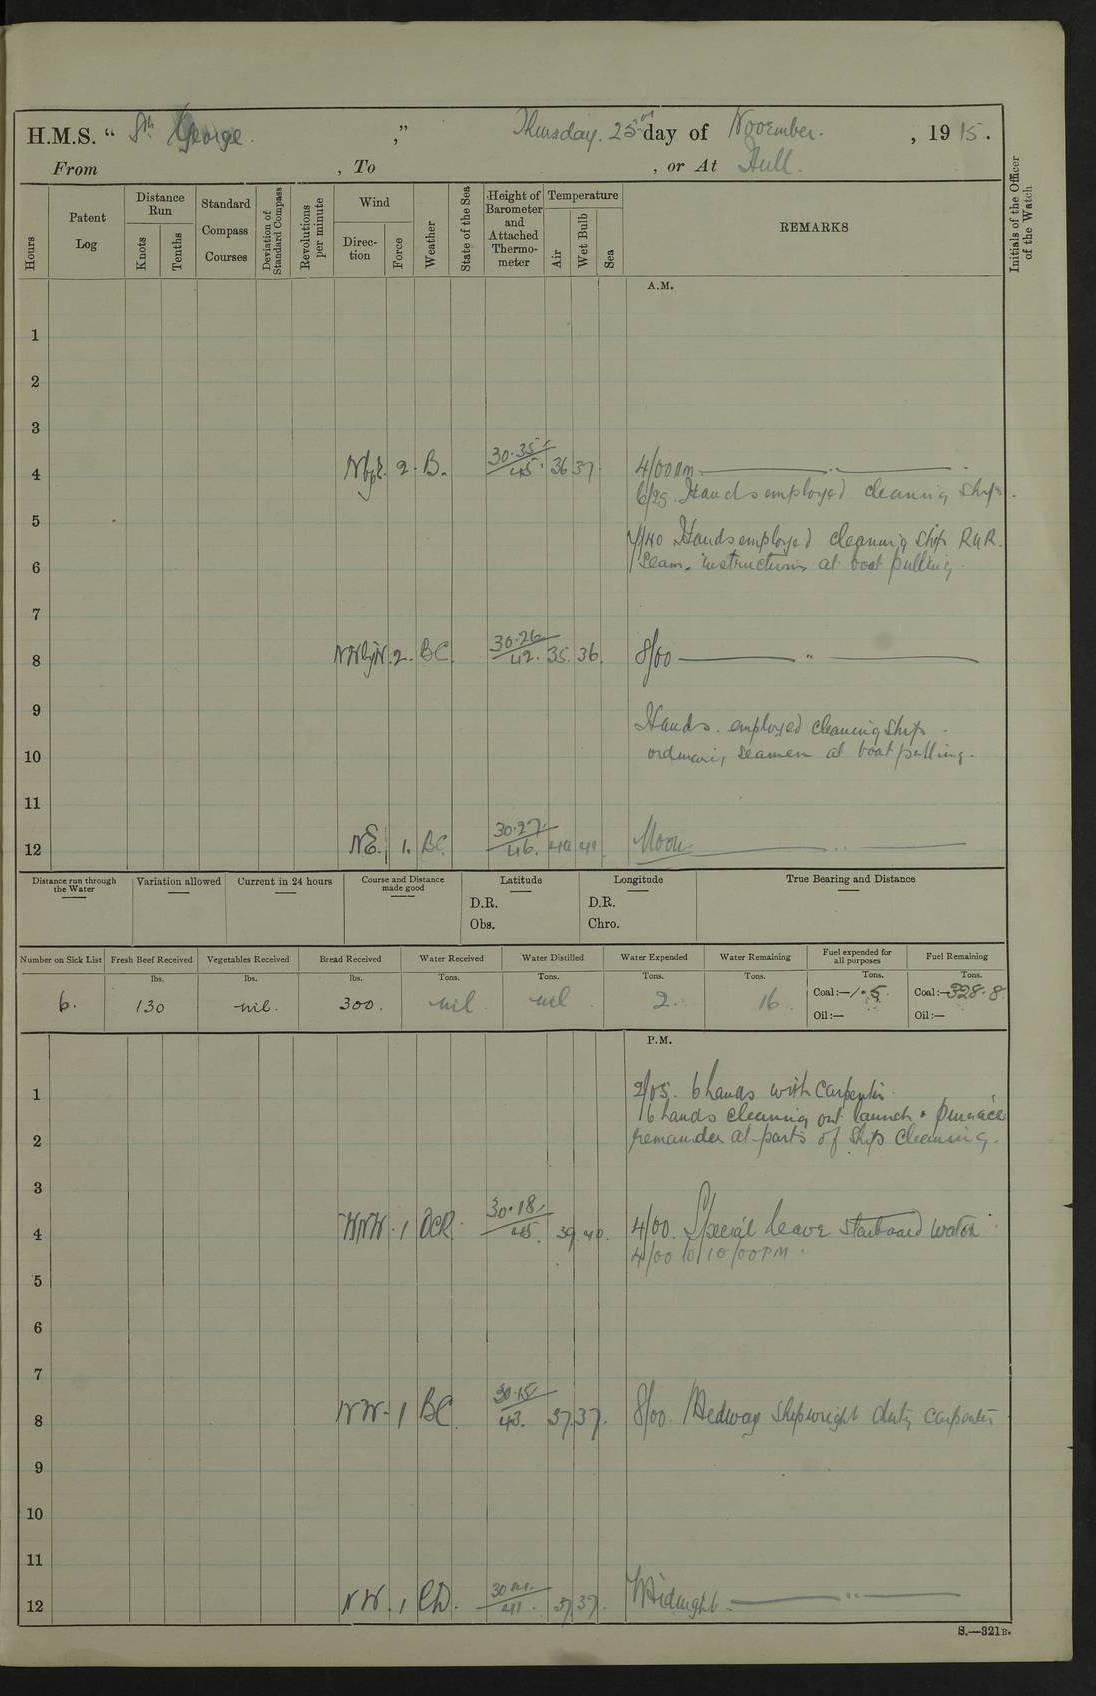 H.M.S. “ St. George. ” Thursday. 25th day of November. , 1915.
From , To , or At Hull.
Hours
Patent Log
Distance Run
Knots
Tenths
Standard Compass Courses
Deviation of Standard Compass
Revolutions per minute
Wind
Direction
Force
Weather
State of the Sea
Height of Barometer and Attached Thermometer
Temperature
Air
Wet Bulb
Sea
REMARKS
Initials of the Officer of the Watch
A.M.
1
2
3
4 NbyE. 2. B. 30.35 / 45. 36 37 4/00 Am
6/25. Hands employed cleaning Ship.
5
7/40 Hands employed cleaning ship RNR.
6 Seam. instructions at boat pulling.
7
8 NWbyN. 2. BC. 30.26 / 42. 35. 36. 8/00 "
9
Hands. employed cleaning Ship
10 ordinary seamen at boat pulling.
11
12 NE. 1. BC. 30.27 / 46. 40 41 Noon "
Distance run through the Water
Variation allowed
Current in 24 hours
Course and Distance made good
Latitude
D.R.
Obs.
Longitude
D.R.
Chro.
True Bearing and Distance
Number on Sick List Fresh Beef Received Vegetables Received Bread Received Water Received Water Distilled Water Expended Water Remaining Fuel expended for all purposes Fuel Remaining
lbs. lbs. lbs. Tons. Tons. Tons. Tons. Tons. Tons.
6. 130 nil. 300. nil nil 2. 16 Coal:—1.5. Coal:—328.8
Oil:— Oil:—
P.M.
1 2/05. 6 hands with Carpenter
6 hands cleaning out launch & pinnace
2 remainder at parts of Ship Cleaning.
3
4 WNW. 1 BCR. 30.18 / 45. 39. 40. 4/00. Special leave starboard watch
4/00 to 10/00 PM.
5
6
7
8 NW. 1 BC. 30.15 / 43. 37. 37. 8/00. Medway shipwright duty carpenter
9
10
11
12 NW. 1 CD. 41. 37. 37. Midnight "
S.—321B.